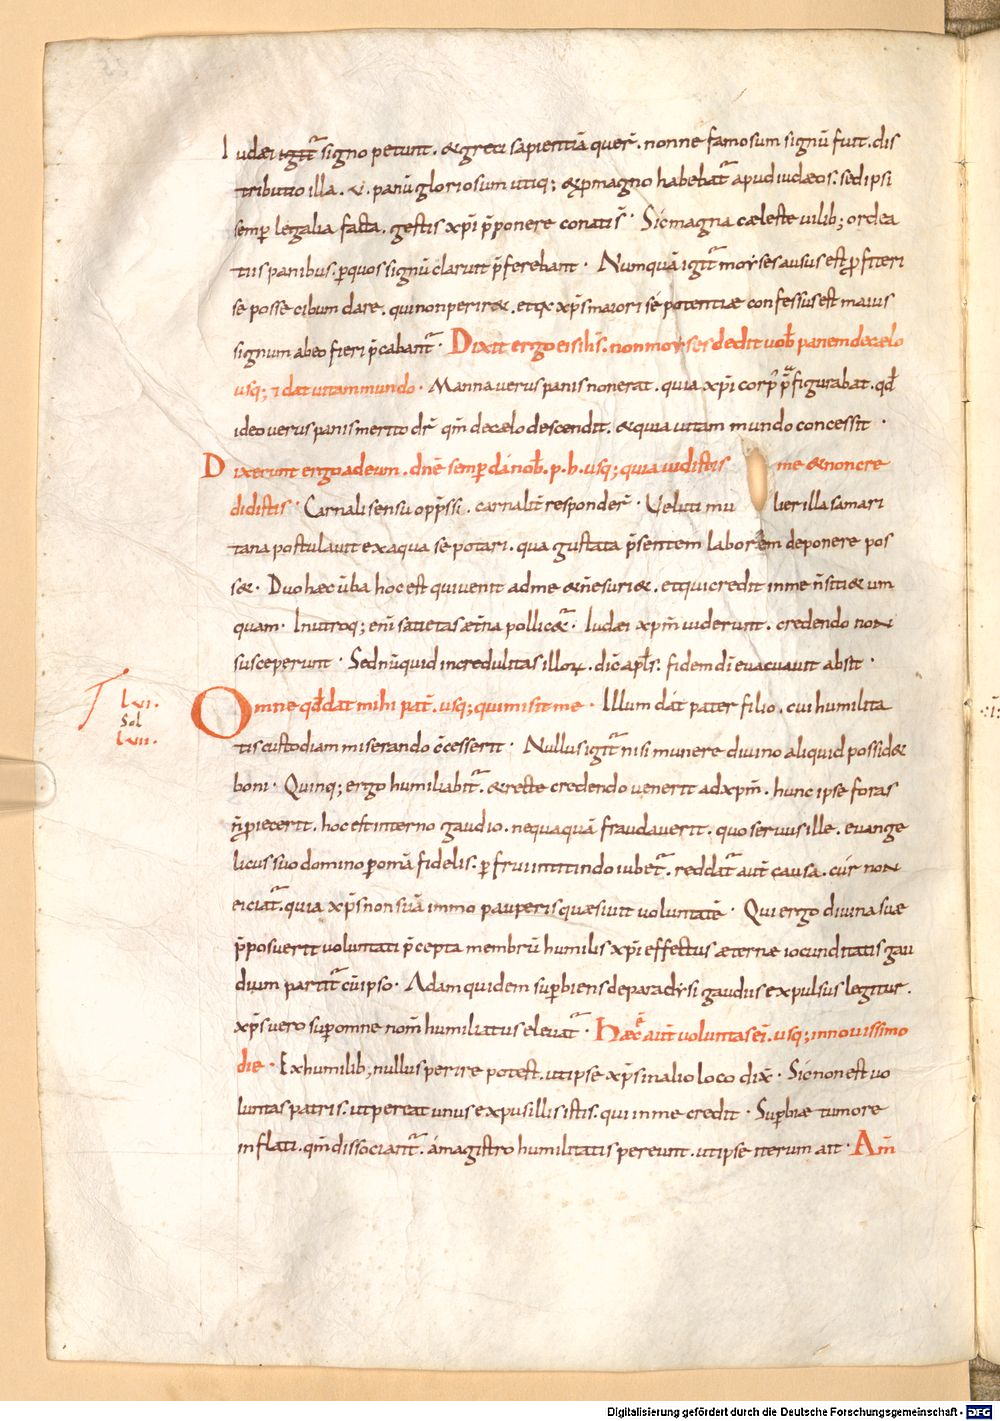 Iudæi igit̄ signo petunt. & greci sapientiā quer̄. nonne famosum signū fuit. dis
tributio illa. v. panū gloriosum utiq; & p magno habebat̄ apud iudæos. sed ipsi
semp̄ legalia facta. gestis xp̄i p̄ponere conatis̄· Sic magna cæleste uilib; ordea
tiis panibus. p̱ quos signū clarunt p̄ferebant· Numquā igit̄ moyses ausus est p̱fiteri
se posse cibum dare. qui non perir&. et qx xp̄s maiori sé potentiæ confessus est maius
signum ab eo fieri p̄cabant̄· Dixit ergo eis ih̄s. non moyses dedit uob̄ panem de cælo
usq; & dat uitam mundo· Manna uerus panis non erat. quia xp̄i corp̄ p̄figurabat. qd̄
ideo uerus panis merito dr̄ qm̄ de cælo descendit. & quia uitam mundo concessit·
Dixerunt ergo ad eum. dn̄e semp̄ dá nob̄. p. h. usq; quia uidistis me & non cre
didistis· Carnali sensu opp̄ssi. carnalit̄ responder̄· Veluti mu lier illa samari
tana postulauit ex aqua se potari. qua gustata p̄sentem laborem deponere pos
s&· Duo hæc ūba hoc est qui uenit ad me & n̄ esuri&. et qui credit in me n̄ siti& um
quam· In utroq; eni satietas æt̄na pollic&̄· Iudæi xpm̄ uiderunt. credendo non
susceperunt· Sed nūquid incredulitas illoꝝ. dic̄ apl̄s. fidem dī euacuauit absit·
Omne qd̄ dat mihi pat̄. usq; qui misit me· Illum dat pater filio. cui humilita
lvi.
Sol
lvii.
tis custodiam miserando c̄cesserit· Nullus igit̄ nisi munere diuino aliquid possid&
boni· Quinq; ergo humiliabit̄. & recte credendo uenerit ad xpm̄. hunc ipse foras
n̄ p̱iecerit. hoc est interno gaudio. nequaquā fraudauerit. quo seruus ille. euange
licus suo domino p̱ omā fidelis. p̱frui intitindo iubet̄. reddat̄ aut̄ causa. cúr non
eiciat̄. quia xp̄s non suā immo pauperis quæsiuit uoluntatē· Qui ergo diuina suæ
p̄posuerit uoluntati p̄cepta membrū humilis xp̄i effectus æternæ iocunditatis gau
dium partit̄ cū ipso· Adam quidem sup̱biens de paradysi gaudiis expulsus legitur.
xp̄s uero sup̱ omne nom̄ humiliatus eleuat̄· Hæc ē aut̄ uoluntas ei. usq; in nouissimo
die· Ex humilib; nullus perire potest. ut ipse xp̄s in alio loco dix̄· Sic non est uo
luntas patris. ut pereat unus ex pusillis istis. qui in me credit· Sup̱biæ tumore
inflati. qm̄ dissociant̄. á magistro humilitatis pereunt. ut ipse iterum ait· Am̄
Digitalisierung gefördert durch die Deutsche Forschungsgemeinschaft - DFG